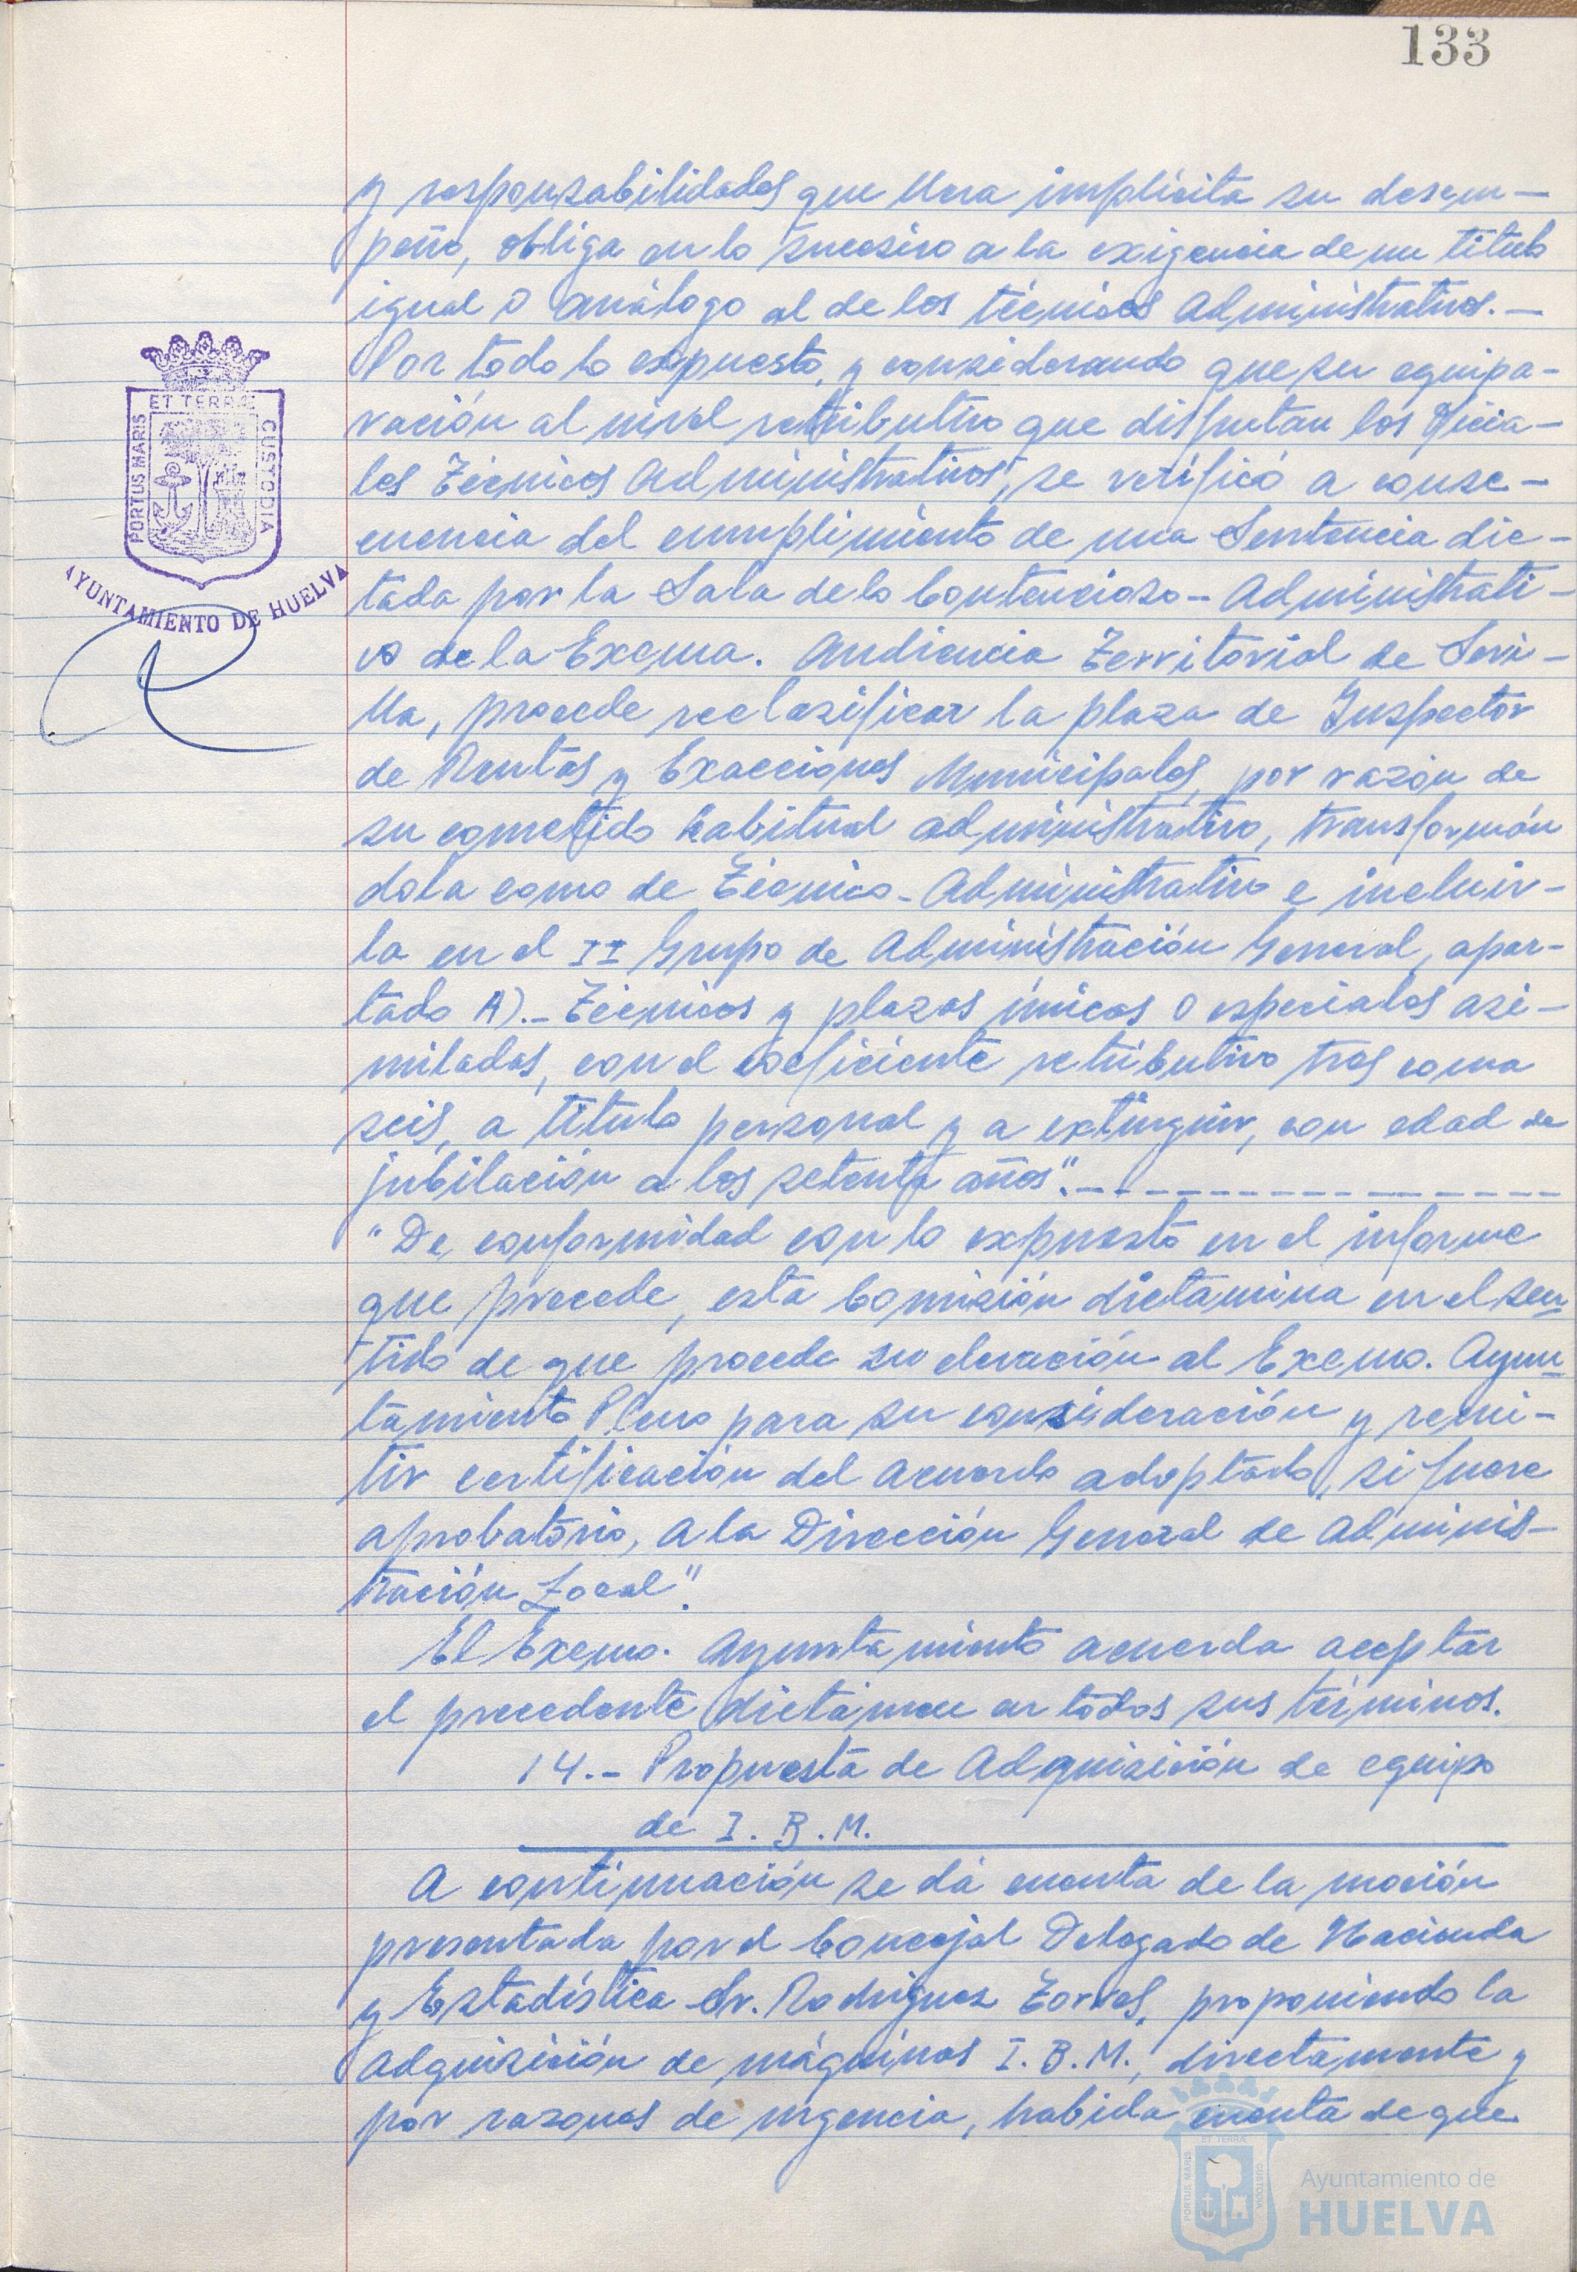 133
y responsabilidades que lleva implícita su desem-
peño, obliga en lo sucesivo a la exigencia de un título
igual o análogo al de los técnicos Administrativos.-
Por todo lo expuesto, y considerando que su equipa-
ración al nivel retributivo que disfrutan los Oficia-
les Técnicos Administrativos, se verificó a conse-
cuencia del cumplimiento de una Sentencia dic-
tada por la Sala de lo Contencioso-Administrati-
vo de la Excma. Audiencia Territorial de Sevi-
lla, procede reclasificar la plaza de Inspector
de Rentas y Exacciones Municipales, por razón de
su cometido habitual administrativo, transformán
dola como de Técnico-Administrativo e incluir-
la en el II Grupo de Administración General, apar-
tado A).- Técnicos y plazas únicas o especiales asi-
miladas, con el coeficiente retributivo tres coma
seis, a título personal y a extinguir, con edad de
jubilación a los setenta años".----------------
"De conformidad con lo expuesto en el informe
que precede, esta Comisión dictamina en el sen
tido de que procede su elevación al Excmo. Ayun
tamiento Pleno para su consideración y remi-
tir certificación del acuerdo adoptado, si fuere
aprobatorio, a la Dirección General de Adminis-
tración Local".
El Excmo. Ayuntamiento acuerda aceptar
el precedente dictámen en todos sus términos.
14.- Propuesta de Adquisición de equipo
de I.B.M.
A continuación se dá cuenta de la moción
presentada por el Concejal Delegado de Hacienda
y Estadística Sr. Rodríguez Torres, proponiendo la
adquisición de máquinas I.B.M., directamente y
por razones de urgencia, habida cuenta de que
ET TERRÆ
PORTUS MARIS
CUSTODIA
AYUNTAMIENTO DE HUELVA
ET TERRA
PORTUS MARIS
CUSTODIA
Ayuntamiento de
HUELVA